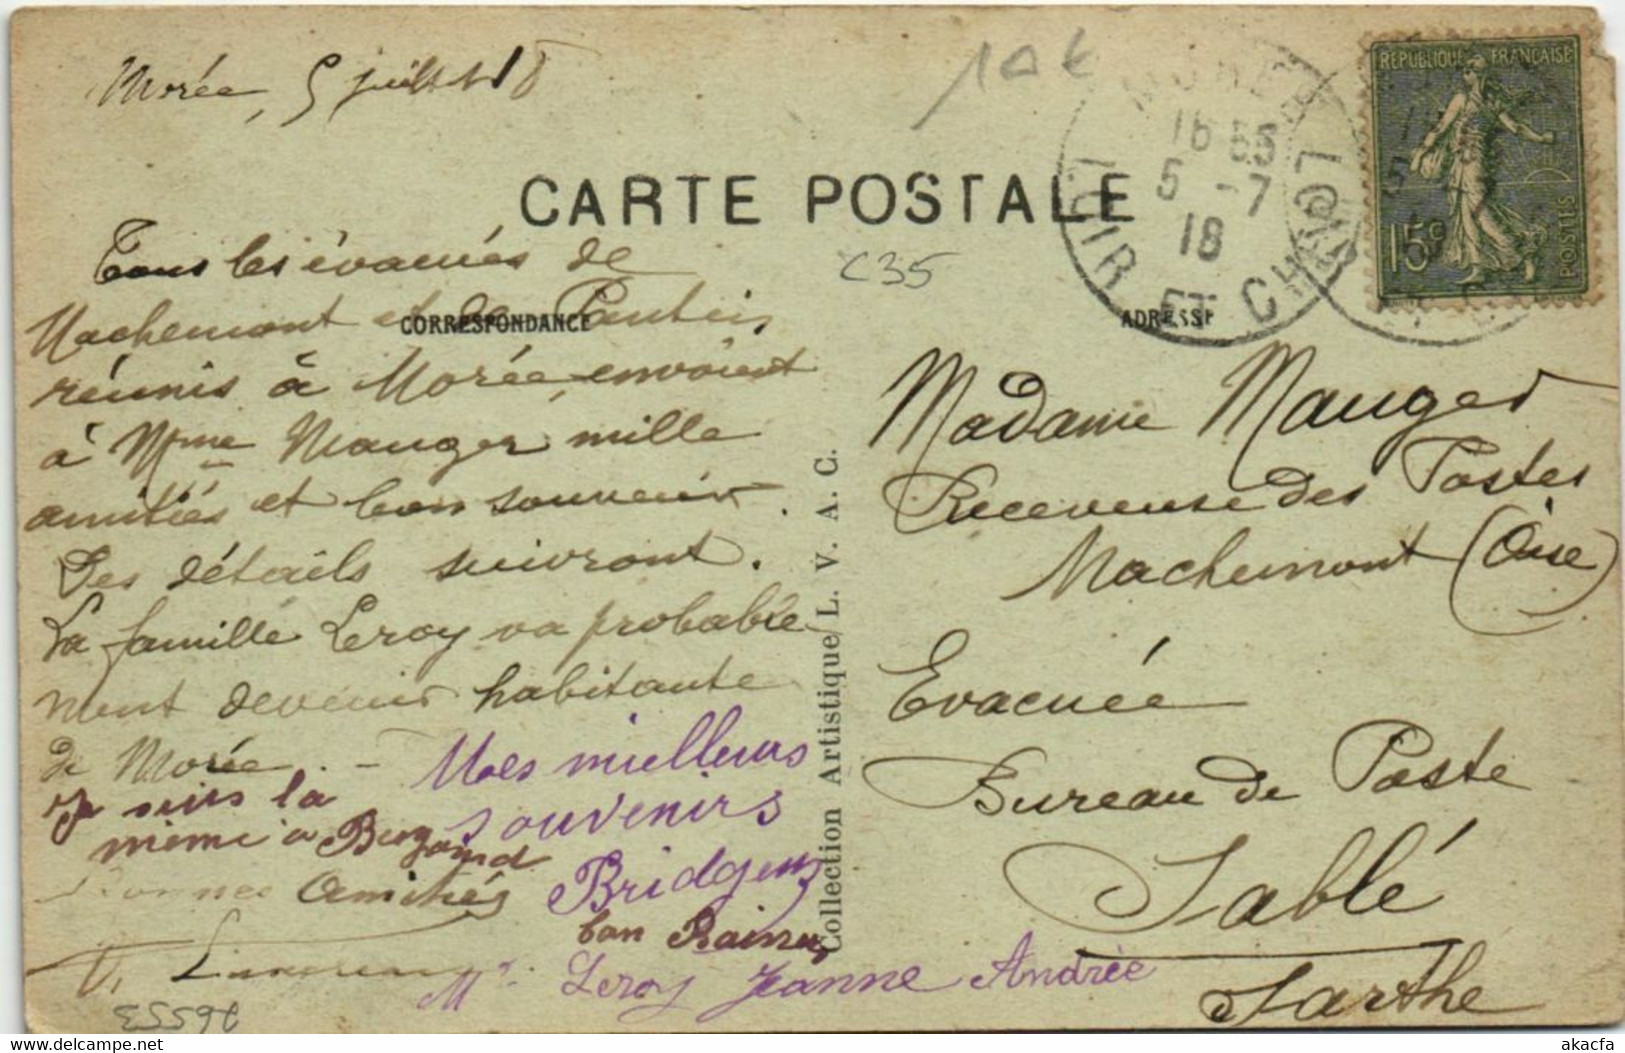 Morée, 5 juillet 18
10 €
CARTE POSTALE
C35
CORRESPONDANCE
ADRESSE
RÉPUBLIQUE FRANÇAISE
15c
POSTES
MORÉE
16 55
5 -7
18
LOIR ET CHER
Tous les évacués de
Machemont et de Pantin,
réunis à Morée, envoient
à Mme Mauger mille
amitiés et bon souvenir.
Des détails suivront.
La famille Leroy va probable
ment devenir habitante
de Morée. -
Je suis la
même à
Bonnes Amitiés
Mes meilleurs
souvenirs
Bridgeus
bon
Me Leroy Jeanne Andrée
Madame Mauger
Receveuse des Postes
Machemont (Oise)
Evacuée
Bureau de Poste
Sablé
Sarthe
Collection Artistique L. V. A. C.
26553
akacfa